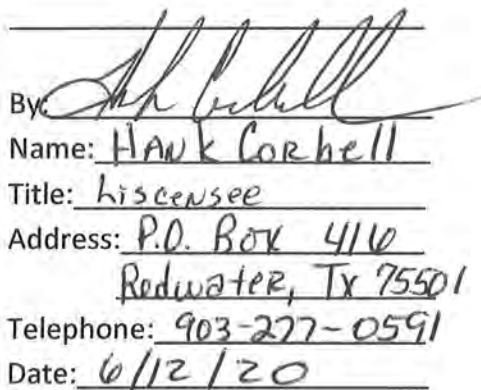 By: Hank Corbell
Name: Hank Corbell
Title: Liscensee
Address: P.O. Box 416
Redwater, Tx 75501
Telephone: 903-277-0591
Date: 6/12/20